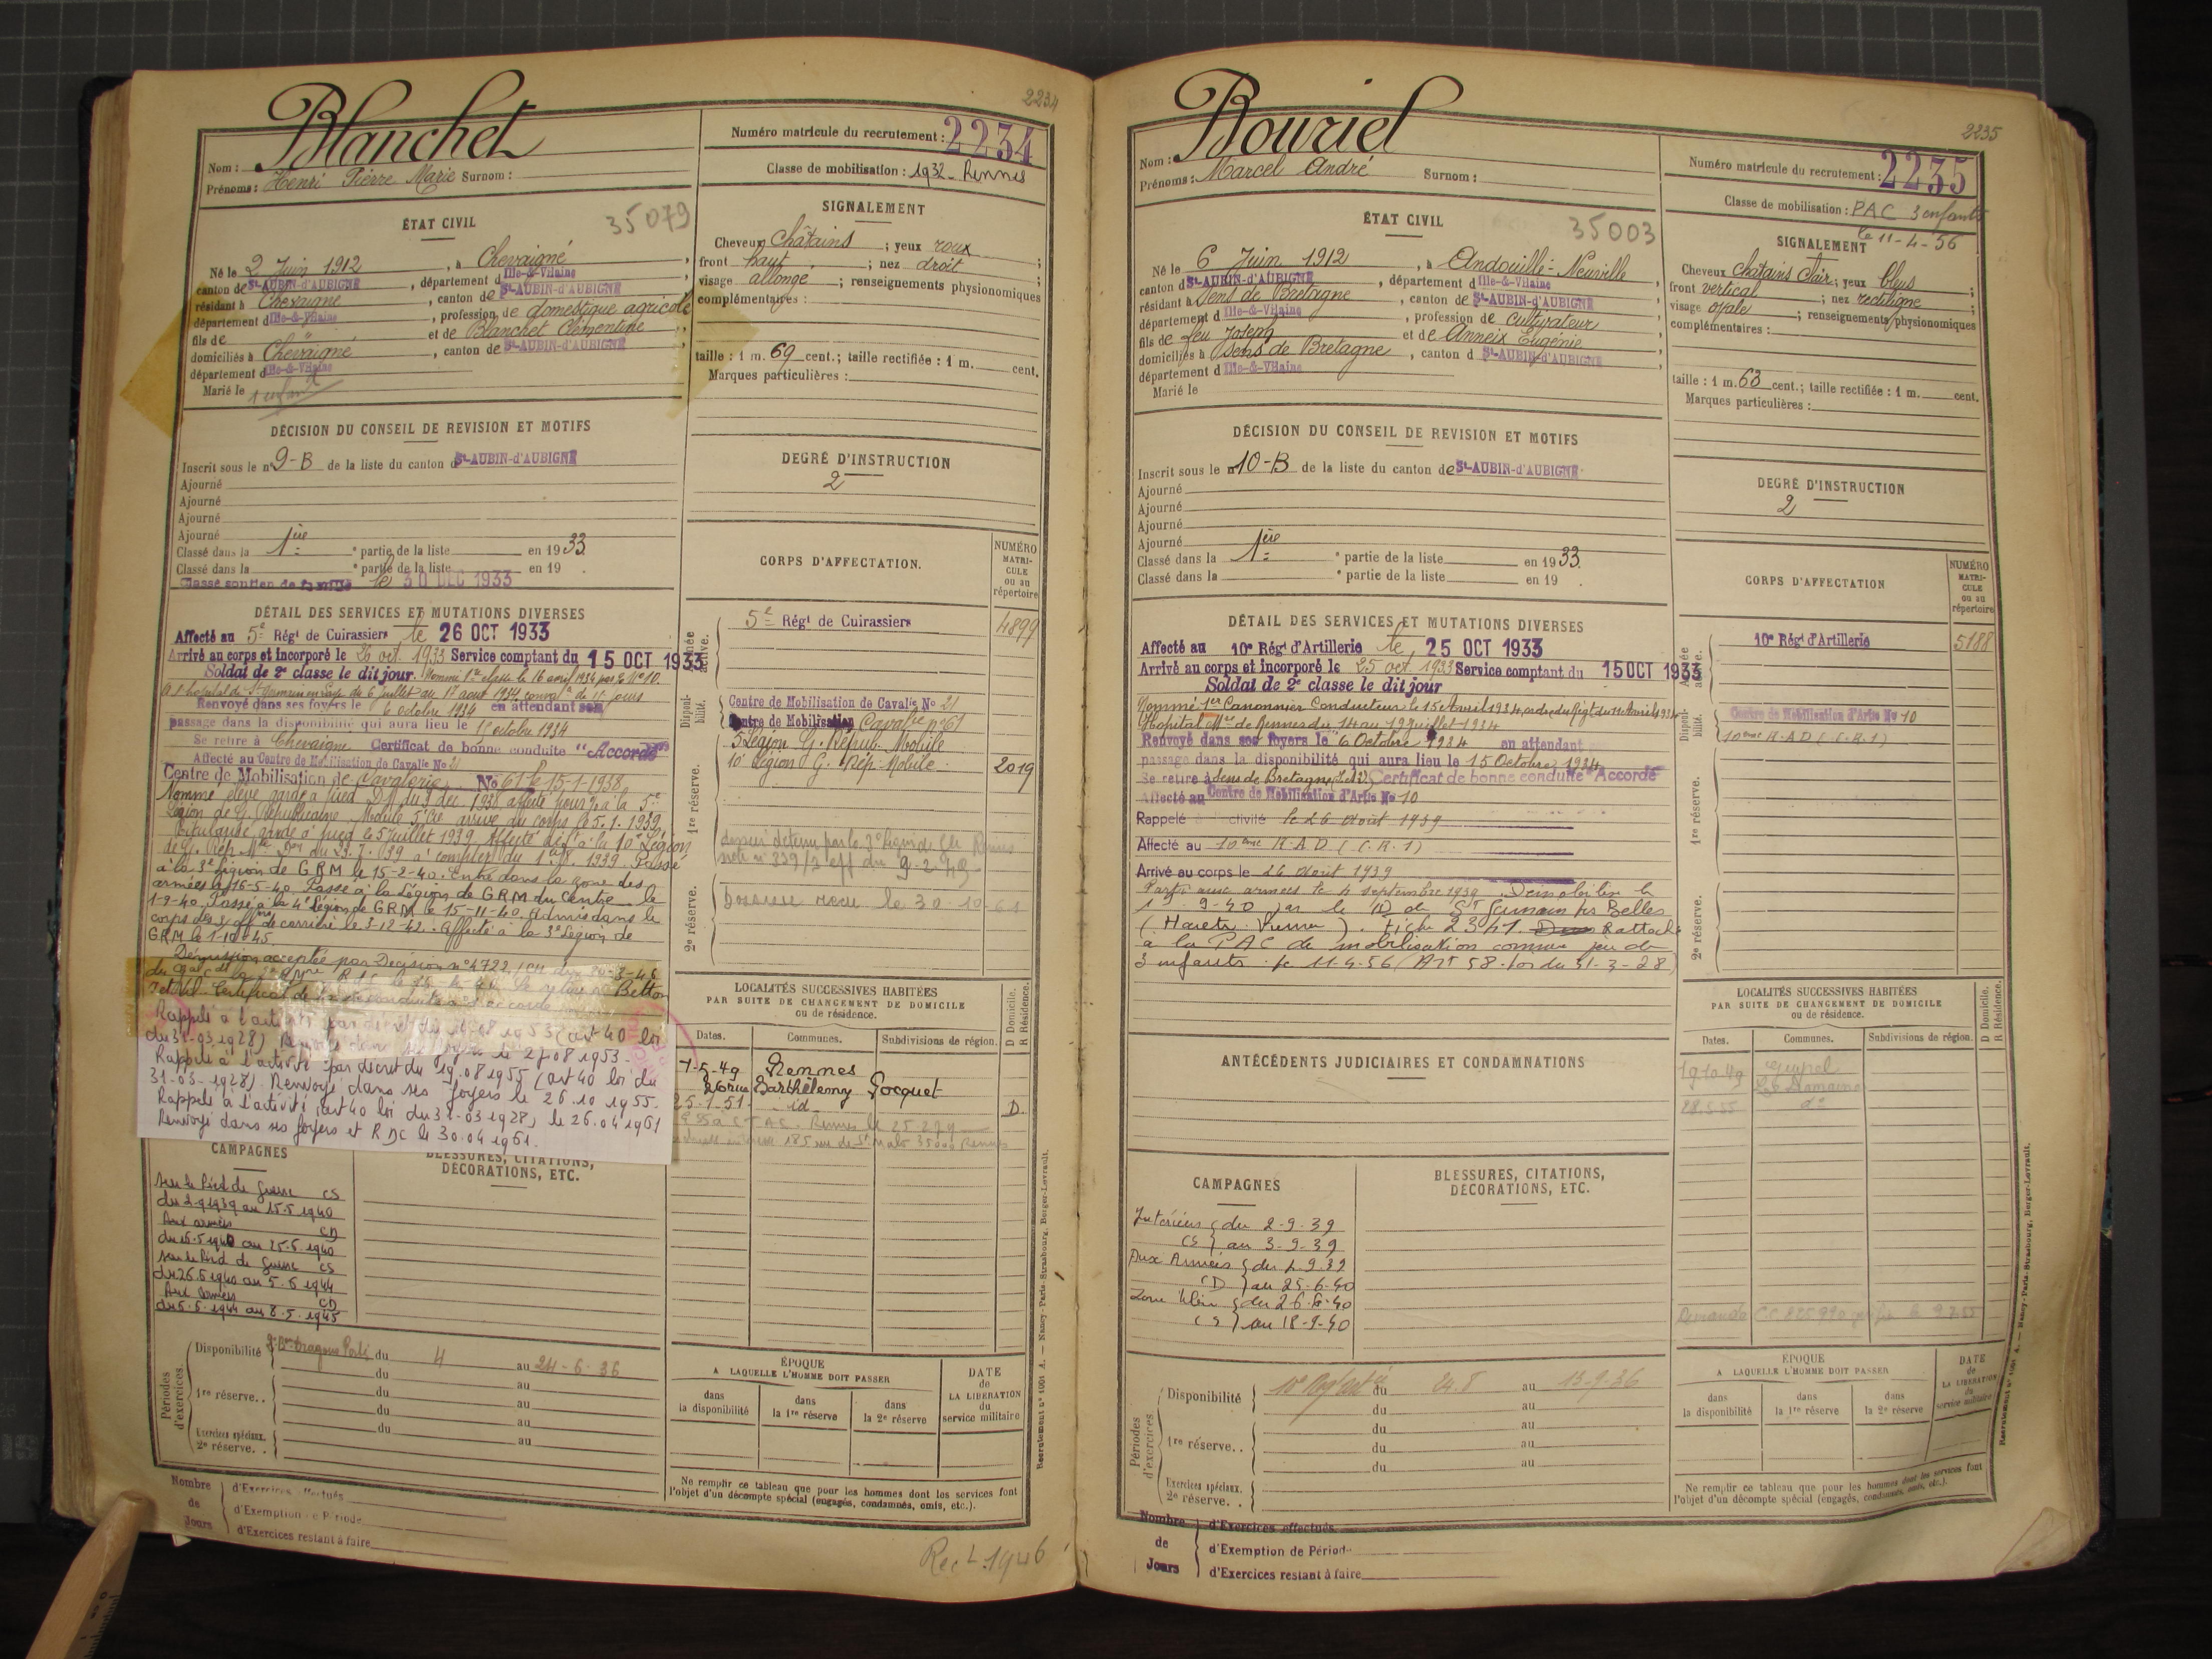 2234
Blanchet
Nom :
Prénoms : Henri Pierre Marie Surnom :
Numéro matricule du recrutement : 2234
Classe de mobilisation : 1932 - Rennes
ÉTAT CIVIL
35079
Né le 2 Juin 1912, à Chevaigné,
canton de St-AUBIN-d'AUBIGNÉ, département d Ille-&-Vilaine
résidant à Chevaigné, canton de St-AUBIN-d'AUBIGNÉ
département d Ille-&-Vilaine, profession de domestique agricole
fils de et de Blanchet Clémentine,
domiciliés à Chevaigné, canton de St-AUBIN-d'AUBIGNÉ
département d Ille-&-Vilaine
Marié le 1 enfant
SIGNALEMENT
Cheveux Châtains ; yeux roux ;
front haut ; nez droit ;
visage allongé ; renseignements physionomiques
complémentaires :
taille : 1 m. 69 cent.; taille rectifiée : 1 m. cent.
Marques particulières :
DÉCISION DU CONSEIL DE REVISION ET MOTIFS
Inscrit sous le n° 9-B de la liste du canton d St-AUBIN-d'AUBIGNÉ
Ajourné
Ajourné
Ajourné
Ajourné
Classé dans la 1ère partie de la liste en 1933.
Classé dans la partie de la liste en 19
Classé soutien de famille le 30 DEC 1933
DEGRÉ D'INSTRUCTION
2
DÉTAIL DES SERVICES ET MUTATIONS DIVERSES
Affecté au 5e Régt de Cuirassiers le 26 OCT 1933
Arrivé au corps et incorporé le 26 oct. 1933 Service comptant du 15 OCT 1933
Soldat de 2e classe le dit jour. Nommé 1ere classe le 16 avril 1934
A l'hôpital de St Germain en Laye du 6 juillet au 17 aout 1934
Renvoyé dans ses foyers le 6 octobre 1934 en attendant son
passage dans la disponibilité qui aura lieu le 15 octobre 1934
Se retire à Chevaigné Certificat de bonne conduite "Accordé"
Affecté au Centre de Mobilisation de Cavalie No 21
Centre de Mobilisation de Cavalerie No 61 le 15-1-1938
Nommé élève garde à pied D.M. du 9 dec. 1938 affecté pour à la 5e
Légion de G. Républicaine Mobile 5e Cie arrivé au corps le 5.1.1939.
Titularisé garde à pied le 5 juillet 1939. Affecté à la 10e Légion
à compter du 1939. Passé
à la 3e Légion de GRM le 15-2-40. Entré dans la zone des
armées le 16-5-40. Passé à la Légion de GRM du Centre le
1-9-40. Passé à la 4e Légion de GRM le 15-11-40. Admis dans le
corps des s/off de carrière le 3-12-42. Affecté à la 3e Légion de
GRM le 1-10-45.
Démission acceptée par Décision n° 4722 / CM du 20-3-46
Betton
Rappelé à l'activité par décret du 08 1953 (art 40 loi
du 31-03.1928). Renvoyé dans ses foyers le 27.08 1953.
Rappelé à l'activité par décret du 19.08 1955 (art 40 loi du
31-03-1928). Renvoyé dans ses foyers le 26.10 1955.
Rappelé à l'activité (art 40 loi du 31-03 1928) le 26.04 1961
Renvoyé dans ses foyers et RDC le 30.04 1961.
CORPS D'AFFECTATION.
NUMÉRO MATRICULE ou au répertoire
Armée active.
5e Régt de Cuirassiers 4899
Disponibilité.
Centre de Mobilisation de Cavalie No 21
Centre de Mobilisation Cavalie n° 61
5 Légion G. Répub. Mobile
10e Légion G. Rép. Mobile 2019
1re réserve.
2e réserve.
Dossier reçu le 30-10-61
LOCALITÉS SUCCESSIVES HABITÉES
PAR SUITE DE CHANGEMENT DE DOMICILE
ou de résidence.
D Domicile.
R Résidence.
Dates. Communes. Subdivisions de région.
7-5-49 Rennes
26 rue Barthélemy Pocquet
25-1-51 id D
CAMPAGNES
BLESSURES, CITATIONS,
DÉCORATIONS, ETC.
sur le Pied de guerre CS
du 2-9 1939 au 15.5 1940
Aux armées CD
du 16.5 1940 au 25.6.1940
sur le Pied de guerre CS
du 26.6 1940 au 5.6 1944
Aux armées CD
du 6.6.1944 au 8.5.1945
Périodes d'exercices.
Disponibilité Dragons Portés du 4 au 24-6-36
du au
1re réserve.. du au
du au
Exercices spéciaux.
2e réserve. . du au
ÉPOQUE
A LAQUELLE L'HOMME DOIT PASSER
dans la disponibilité
dans la 1re réserve
dans la 2e réserve
DATE de LA LIBÉRATION du service militaire
Ne remplir ce tableau que pour les hommes dont les services font
l'objet d'un décompte spécial (engagés, condamnés, omis, etc.).
Nombre de Jours
d'Exercices effectués
d'Exemption de Période
d'Exercices restant à faire
Rect. 1946
Recrutement n° 1001 A. — Nancy-Paris-Strasbourg, Berger-Levrault.
2235
Bouriel
Nom :
Prénoms : Marcel André Surnom :
Numéro matricule du recrutement : 2235
Classe de mobilisation : PAC 3 enfants
le 11-4-56
ÉTAT CIVIL
35003
Né le 6 Juin 1912, à Andouillé-Neuville
canton d St-AUBIN-d'AUBIGNÉ, département d Ille-&-Vilaine
résidant à Sens de Bretagne, canton de St-AUBIN-d'AUBIGNÉ
département d Ille-&-Vilaine, profession de cultivateur
fils de feu Joseph et de Anneix Eugénie
domiciliés à Sens de Bretagne, canton d St-AUBIN-d'AUBIGNÉ
département d Ille-&-Vilaine
Marié le
SIGNALEMENT
Cheveux châtains clair ; yeux bleus ;
front vertical ; nez rectiligne ;
visage ovale ; renseignements physionomiques
complémentaires :
taille : 1 m. 63 cent.; taille rectifiée : 1 m. cent.
Marques particulières :
DÉCISION DU CONSEIL DE REVISION ET MOTIFS
Inscrit sous le n° 10-B de la liste du canton de St-AUBIN-d'AUBIGNÉ
Ajourné
Ajourné
Ajourné
Ajourné
Classé dans la 1ère partie de la liste en 1933.
Classé dans la partie de la liste en 19 .
DEGRÉ D'INSTRUCTION
2
DÉTAIL DES SERVICES ET MUTATIONS DIVERSES
Affecté au 10e Régt d'Artillerie le 25 OCT 1933
Arrivé au corps et incorporé le 25 oct. 1933 Service comptant du 15 OCT 1933
Soldat de 2e classe le dit jour
Nommé 1er Canonnier Conducteur le 15 Avril 1934, ordre du Régt du 11 Avril 1934
Hôpital Mre de Rennes du 14 au 19 juillet 1934
Renvoyé dans ses foyers le 6 Octobre 1934 en attendant
passage dans la disponibilité qui aura lieu le 15 Octobre 1934
Se retire à Sens de Bretagne (I.&V) Certificat de bonne conduite "Accordé"
Affecté au Centre de Mobilisation d'Artie No 10
Rappelé à l'activité le 26 Août 1939
Affecté au 10ème R.A.D (C.R.1)
Arrivé au corps le 26 Août 1939
Parti aux armées le 4 septembre 1939. Démobilisé le
9-40 par le CD de St Germain les Belles
(Haute Vienne). Fiche 2341. Rattaché
à la PAC de mobilisation comme père de
3 enfants le 11-4-56 (Art 58. loi du 31-3-28)
CORPS D'AFFECTATION
NUMÉRO MATRICULE ou au répertoire
Armée active.
10e Régt d'Artillerie 5188
Disponibilité.
Centre de Mobilisation d'Artie No 10
10ème R.A.D (C.R.1)
1re réserve.
2e réserve.
ANTÉCÉDENTS JUDICIAIRES ET CONDAMNATIONS
LOCALITÉS SUCCESSIVES HABITÉES
PAR SUITE DE CHANGEMENT DE DOMICILE
ou de résidence.
D Domicile.
R Résidence.
Dates. Communes. Subdivisions de région.
19.10.49
28.5.55 do
CAMPAGNES
BLESSURES, CITATIONS,
DÉCORATIONS, ETC.
Intérieur du 2-9-39
CS au 3-9-39
Aux Armées du 4.9.39
CD au 25-6-40
Zone libre du 26-6-40
CS au 18-9-40
Périodes d'exercices.
Disponibilité 10e Regt artie du 24.8 au 13-9-36
du au
1re réserve.. du au
du au
du au
Exercices spéciaux.
2e réserve. .
ÉPOQUE
A LAQUELLE L'HOMME DOIT PASSER
dans la disponibilité
dans la 1re réserve
dans la 2e réserve
DATE de LA LIBÉRATION du service militaire
Ne remplir ce tableau que pour les hommes dont les services font
l'objet d'un décompte spécial (engagés, condamnés, omis, etc.).
Nombre de Jours
d'Exercices effectués
d'Exemption de Période
d'Exercices restant à faire
Recrutement n° 1001 A. — Nancy-Paris-Strasbourg, Berger-Levrault.